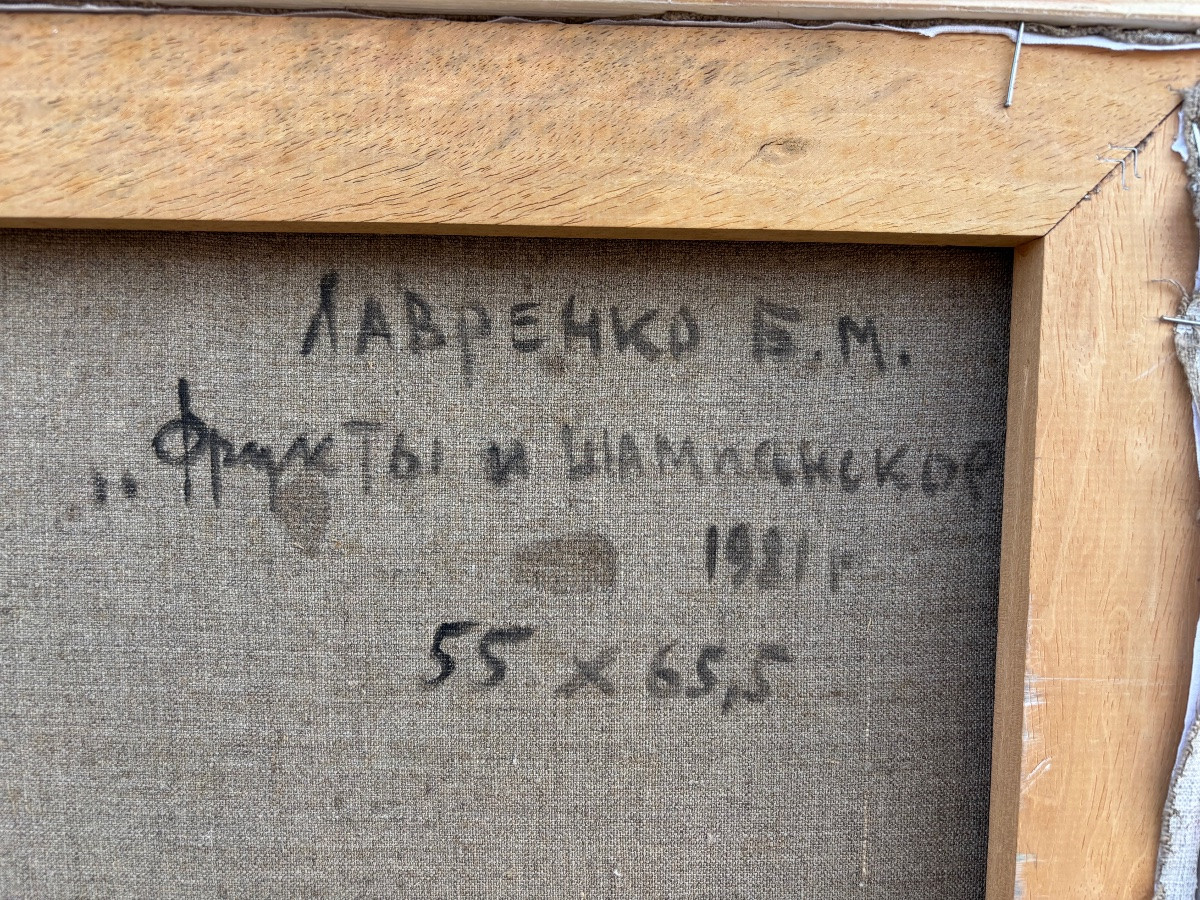 ЛАВРЕНКО Б.М.
„Фрукты и шампанское
1981 г
55 х 65,5